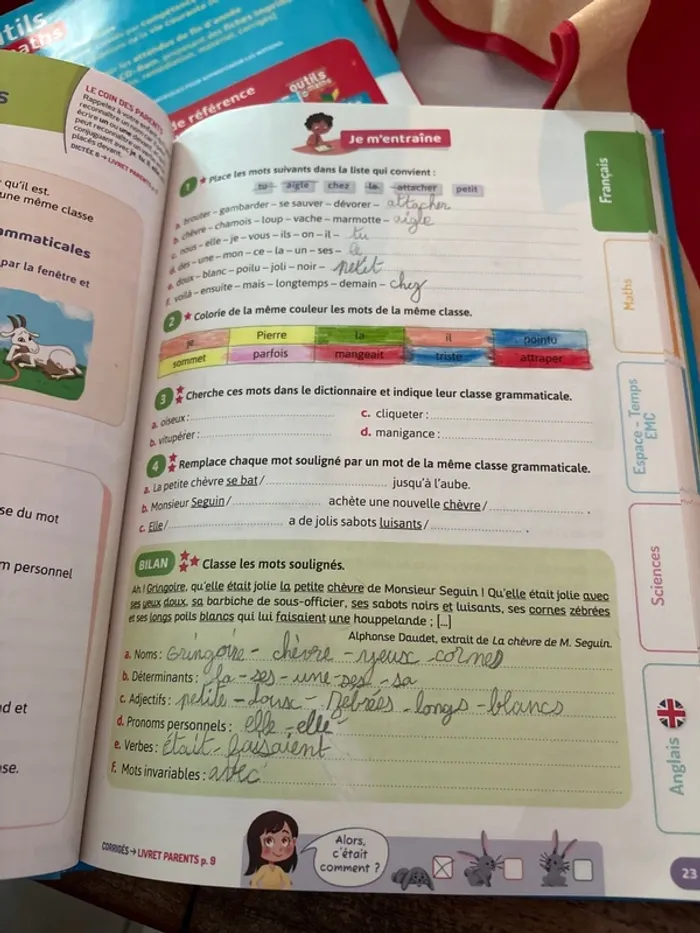 tils
maths
outils
maths
de référence
S
LE COIN DES PARENTS
DICTÉE 8 → LIVRET PARENTS
qu'il est.
une même classe
ammaticales
par la fenêtre et
se du mot
m personnel
nd et
ase.
Je m'entraîne
1 ★ Place les mots suivants dans la liste qui convient :
tu aigle chez le attacher petit
a. brouter – gambarder – se sauver – dévorer – attapher
b. chèvre – chamois – loup – vache – marmotte – aigle
c. nous – elle – je – vous – ils – on – il – tu
d. des – une – mon – ce – la – un – ses – le
e. doux – blanc – poilu – joli – noir – petit
f. voilà – ensuite – mais – longtemps – demain – chez
2 ★ Colorie de la même couleur les mots de la même classe.
je Pierre la il pointu
sommet parfois mangeait triste attraper
3 ★★ Cherche ces mots dans le dictionnaire et indique leur classe grammaticale.
a. oiseux : c. cliqueter :
b. vitupérer : d. manigance :
4 ★★ Remplace chaque mot souligné par un mot de la même classe grammaticale.
a. La petite chèvre se bat / jusqu'à l'aube.
b. Monsieur Seguin / achète une nouvelle chèvre / .
c. Elle / a de jolis sabots luisants / .
BILAN ★★★ Classe les mots soulignés.
Ah ! Gringoire, qu'elle était jolie la petite chèvre de Monsieur Seguin ! Qu'elle était jolie avec
ses yeux doux, sa barbiche de sous-officier, ses sabots noirs et luisants, ses cornes zébrées
et ses longs poils blancs qui lui faisaient une houppelande ; [...]
Alphonse Daudet, extrait de La chèvre de M. Seguin.
a. Noms : Gringoire - chèvre - yeux - cornes
b. Déterminants : la - ses - une - ses - sa
c. Adjectifs : petite - doux - Zebrées - longs - blancs
d. Pronoms personnels : elle - elle
e. Verbes : était - faisaient
f. Mots invariables : avec
Alors,
c'était
comment ?
CORRIGÉS → LIVRET PARENTS p. 9
Français
Maths
Espace - Temps
EMC
Sciences
Anglais
23